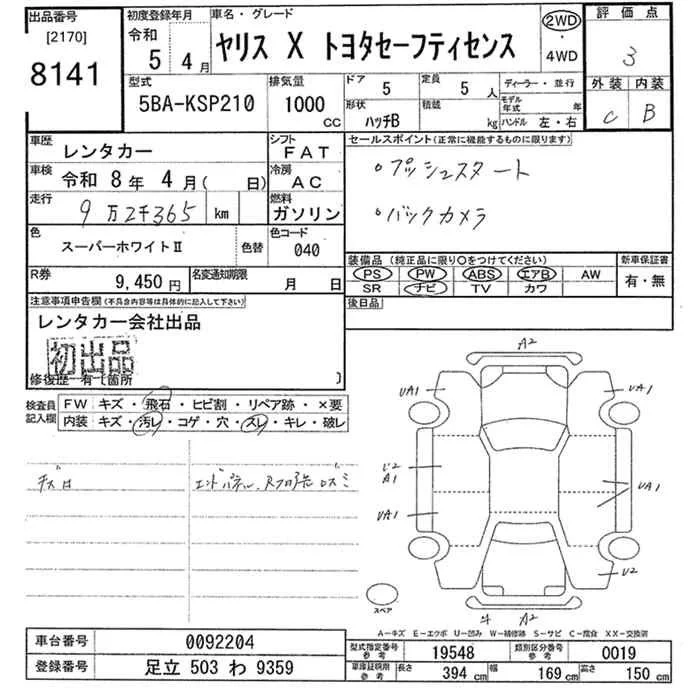 出品番号
[2170]
8141
初度登録年月
令和
5年 4月
車名・グレード
ヤリス X トヨタセーフティセンス
2WD
・
4WD
評価点
3
外装 内装
C B
型式
5BA-KSP210
排気量
1000
CC
ドア 5
定員 5人
形状 ハッチB
積載 kg
ディーラー・並行
モデル年式 年
ハンドル 左・右
車歴 レンタカー
シフト FAT
車検 令和 8年 4月( 日)
冷房 AC
走行 9万2千365 km
燃料 ガソリン
色 スーパーホワイトⅡ
色替
色コード 040
R券 9,450円
名変通知期限 月 日
セールスポイント(正常に機能するものに限ります)
・プッシュスタート
・バックカメラ
装備品(純正品に限り○をつけてください)
新車保証書
PS PW ABS エアB AW
SR ナビ TV カワ
有・無
後日品
注意事項申告欄(不具合内容等は具体的に記入して下さい)
レンタカー会社出品
初出品
修復歴 有〔箇所 〕
検査員記入欄
FW キズ・飛石・ヒビ割・リペア跡・×要
内装 キズ・汚レ・コゲ・穴・スレ・キレ・破レ
エンドパネル
A2
UA1
UA1
U2
A1
UA1
UA1
U2
A2
スペア
A-キズ E-エクボ U-凹み W-補修跡 S-サビ C-腐食 XX-交換済
車台番号 0092204
登録番号 足立 503 わ 9359
型式指定番号参考 19548
類別区分番号参考 0019
車庫証明用参考 長さ 394 cm 幅 169 cm 高さ 150 cm